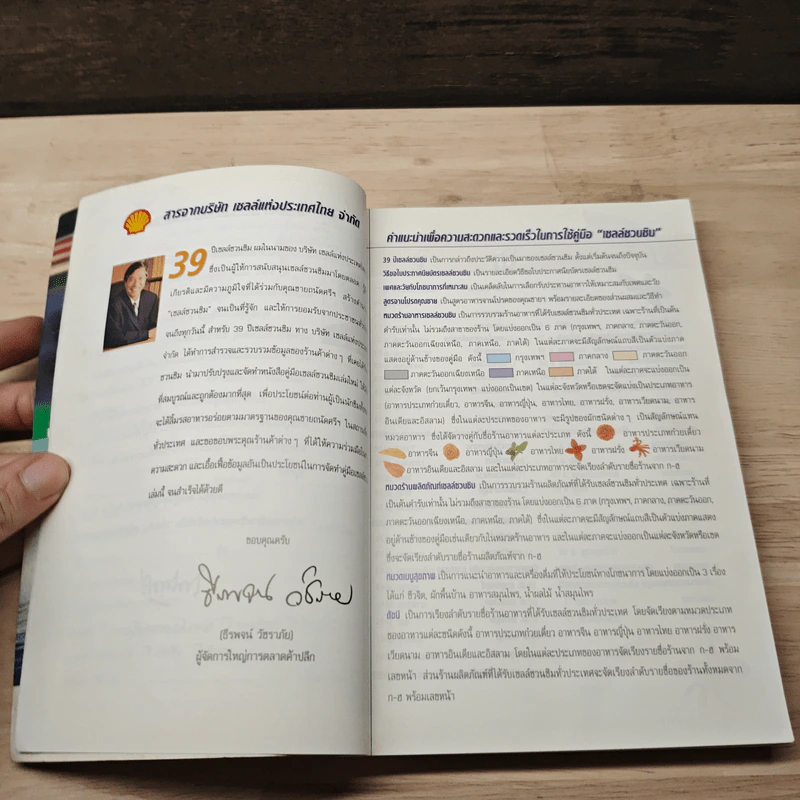 สารจากบริษัท เชลล์แห่งประเทศไทย จำกัด
39 ปีเชลล์ชวนชิม ผมในนามของ บริษัท เชลล์แห่งประเทศไทย
ซึ่งเป็นผู้ให้การสนับสนุนเชลล์ชวนชิมมาโดยตลอด
เกียรติและมีความภูมิใจที่ได้ร่วมกับคุณชายถนัดศรี สร้าง
"เชลล์ชวนชิม" จนเป็นที่รู้จัก และให้การยอมรับจากประชาชน
จนถึงทุกวันนี้ สำหรับ 39 ปีเชลล์ชวนชิม ทาง บริษัท เชลล์แห่งประเทศไทย
จำกัด ได้ทำการสำรวจและรวบรวมข้อมูลของร้านค้าต่าง ๆ ที่เคยได้
ชวนชิม นำมาปรับปรุงและจัดทำหนังสือคู่มือเชลล์ชวนชิมเล่มใหม่ ให้
ที่สมบูรณ์และถูกต้องมากที่สุด เพื่อประโยชน์ต่อท่านผู้เป็นนักชิม
จะได้ลิ้มรสอาหารอร่อยตามมาตรฐานของคุณชายถนัดศรีฯ ใน
ทั่วประเทศ และขอขอบพระคุณร้านค้าต่าง ๆ ที่ได้ให้ความร่วมมือ
ความสะดวก และเอื้อเฟื้อข้อมูลอันเป็นประโยชน์ในการจัดทำคู่มือเชลล์
เล่มนี้ จนสำเร็จได้ด้วยดี
ขอบคุณครับ
ธีรพจน์ วัชราภัย
(ธีรพจน์ วัชราภัย)
ผู้จัดการใหญ่การตลาดค้าปลีก
คำแนะนำเพื่อความสะดวกและรวดเร็วในการใช้คู่มือ "เชลล์ชวนชิม"
39 ปีเชลล์ชวนชิม เป็นการกล่าวถึงประวัติความเป็นมาของเชลล์ชวนชิม ตั้งแต่เริ่มต้นจนถึงปัจจุบัน
วิธีชงใบประกาศนียบัตรเชลล์ชวนชิม เป็นรายละเอียดวิธีชงใบประกาศนียบัตรเชลล์ชวนชิม
เพศและวัยกับโภชนาการที่เหมาะสม เป็นเคล็ดลับในการเลือกรับประทานอาหารให้เหมาะสมกับเพศและวัย
สูตรจานโปรดคุณชาย เป็นสูตรอาหารจานโปรดของคุณชายฯ พร้อมรายละเอียดของส่วนผสมและวิธีทำ
หมวดร้านอาหารเชลล์ชวนชิม เป็นการรวบรวมร้านอาหารที่ได้รับเชลล์ชวนชิมทั่วประเทศ เฉพาะร้านที่เป็น
ตำรับเท่านั้น ไม่รวมถึงสาขาของร้าน โดยแบ่งออกเป็น 6 ภาค (กรุงเทพฯ, ภาคกลาง, ภาคตะวันออก,
ภาคตะวันออกเฉียงเหนือ, ภาคเหนือ, ภาคใต้) ในแต่ละภาคจะมีสัญลักษณ์แถบสีเป็นตัวแบ่งภาค
แสดงอยู่ด้านข้างของคู่มือ ดังนี้ กรุงเทพฯ ภาคกลาง ภาคตะวันออก
ภาคตะวันออกเฉียงเหนือ ภาคเหนือ ภาคใต้ ในแต่ละภาคจะแบ่งออกเป็น
แต่ละจังหวัด (ยกเว้นกรุงเทพฯ แบ่งออกเป็นเขต) ในแต่ละจังหวัดหรือเขตจะแบ่งเป็นประเภทอาหาร
(อาหารประเภทก๋วยเตี๋ยว, อาหารจีน, อาหารญี่ปุ่น, อาหารไทย, อาหารฝรั่ง, อาหารเวียดนาม, อาหาร
อินเดียและอิสลาม) ซึ่งในแต่ละประเภทของอาหาร จะมีรูปของผักชนิดต่าง ๆ เป็นสัญลักษณ์แทน
หมวดอาหาร ซึ่งได้จัดวางคู่กับชื่อร้านอาหารแต่ละประเภท ดังนี้ อาหารประเภทก๋วยเตี๋ยว
อาหารจีน อาหารญี่ปุ่น อาหารไทย อาหารฝรั่ง อาหารเวียดนาม
อาหารอินเดียและอิสลาม และในแต่ละประเภทอาหารจะจัดเรียงลำดับรายชื่อร้านจาก ก-ฮ
หมวดร้านผลิตภัณฑ์เชลล์ชวนชิม เป็นการรวบรวมร้านผลิตภัณฑ์ที่ได้รับเชลล์ชวนชิมทั่วประเทศ เฉพาะร้านที่
เป็นต้นตำรับเท่านั้น ไม่รวมถึงสาขาของร้าน โดยแบ่งออกเป็น 6 ภาค (กรุงเทพฯ, ภาคกลาง, ภาคตะวันออก,
ภาคตะวันออกเฉียงเหนือ, ภาคเหนือ, ภาคใต้) ซึ่งในแต่ละภาคจะมีสัญลักษณ์แถบสีเป็นตัวแบ่งภาคแสดง
อยู่ด้านข้างของคู่มือเช่นเดียวกับในหมวดร้านอาหาร และในแต่ละภาคจะแบ่งออกเป็นแต่ละจังหวัดหรือเขต
ซึ่งจะจัดเรียงลำดับรายชื่อร้านผลิตภัณฑ์จาก ก-ฮ
หมวดเมนูสุขภาพ เป็นการแนะนำอาหารและเครื่องดื่มที่ให้ประโยชน์ทางโภชนาการ โดยแบ่งออกเป็น 3 เรื่อง
ได้แก่ ชีวจิต, ผักพื้นบ้าน อาหารสมุนไพร, น้ำผลไม้ น้ำสมุนไพร
ดัชนี เป็นการเรียงลำดับรายชื่อร้านอาหารที่ได้รับเชลล์ชวนชิมทั่วประเทศ โดยจัดเรียงตามหมวดประเภท
ของอาหารแต่ละชนิดดังนี้ อาหารประเภทก๋วยเตี๋ยว อาหารจีน อาหารญี่ปุ่น อาหารไทย อาหารฝรั่ง อาหาร
เวียดนาม อาหารอินเดียและอิสลาม โดยในแต่ละประเภทของอาหารจัดเรียงรายชื่อร้านจาก ก-ฮ พร้อม
เลขหน้า ส่วนร้านผลิตภัณฑ์ที่ได้รับเชลล์ชวนชิมทั่วประเทศจะจัดเรียงลำดับรายชื่อของร้านทั้งหมดจาก
ก-ฮ พร้อมเลขหน้า